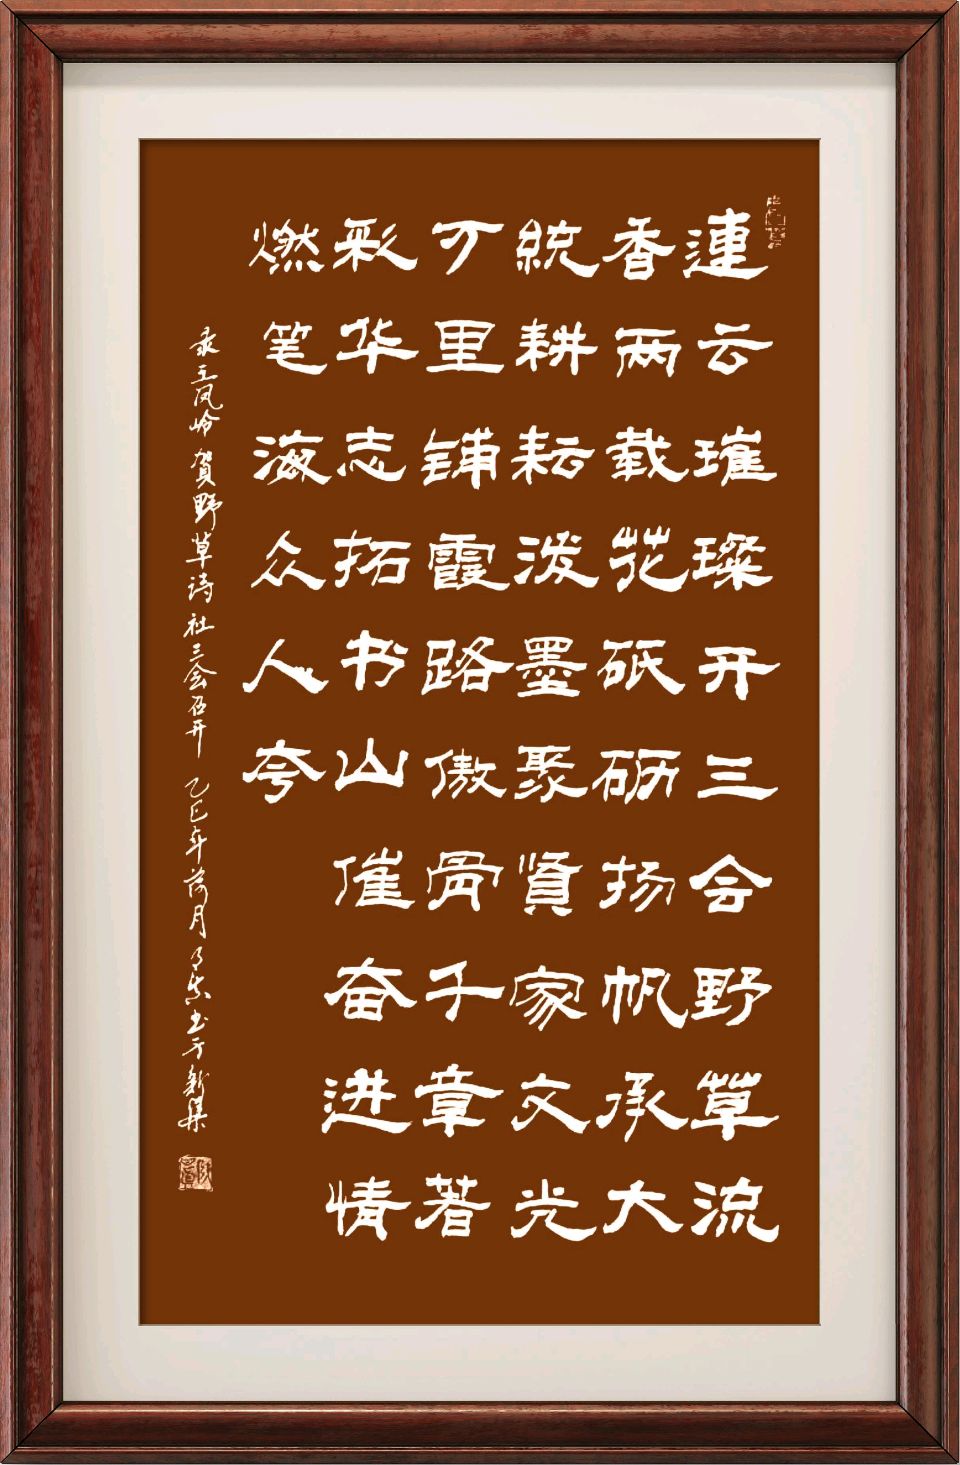 連云璀璨开三会野草流
香两载花砥砺扬帆承大
統耕耘泼墨聚賢家文光
万里铺霞路傲骨千章著
彩华志拓书山催奋进情
燃笔海众人夸
录王凤岭贺野草诗社三会召开 乙巳年荷月